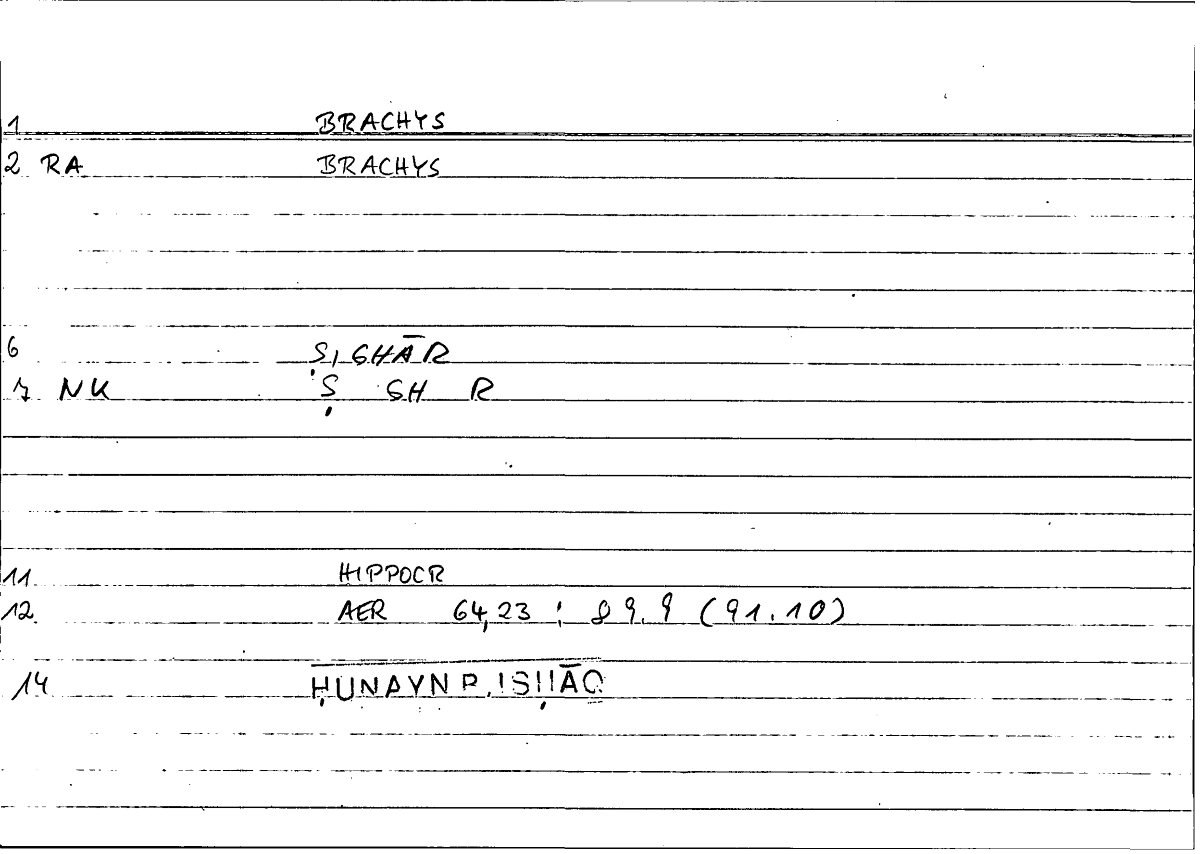 1 BRACHYS
2 RA BRACHYS
6 ṢIGHĀR
7 NK Ṣ GH R
11 HIPPOCR
12 AER 64,23 ; 89.9 (91.10)
14 ḤUNAYN B. ISḤĀQ